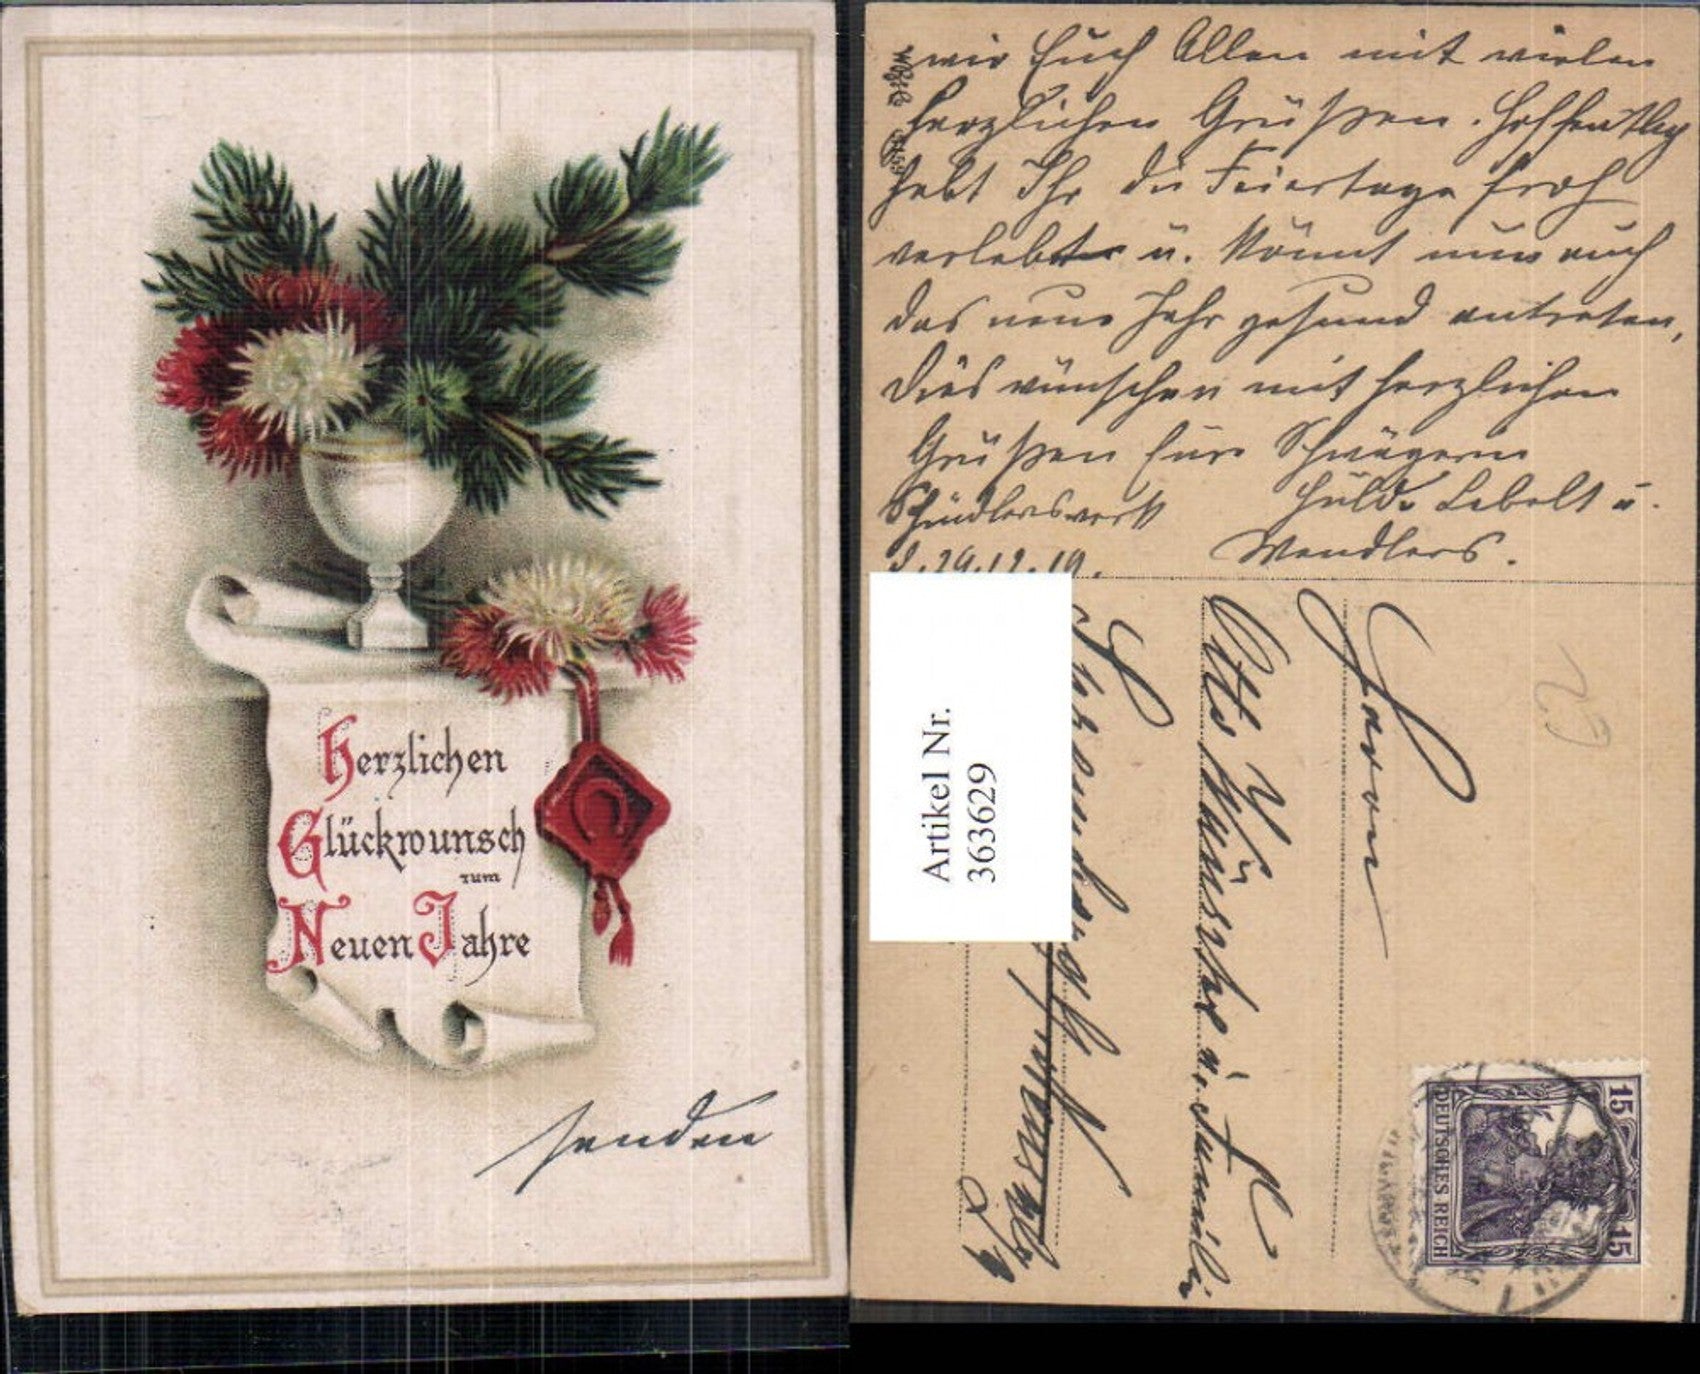 Herzlichen
Glückwunsch
zum
Neuen Jahre
senden
wir Euch Allen mit vielen
herzlichen Grüßen. Hoffentlich
habt Ihr die Feiertage froh
verlebt u. könnt nun auch
das neue Jahr gesund antreten,
dies wünschen mit herzlichen
Grüßen Eure Schwägerin
Huld. Lebelt u.
Wendlers.
Schindlerswerk
d. 29.12.19.
Artikel Nr.
363629
Herrn
Otto u. Familie
15 15
DEUTSCHES REICH